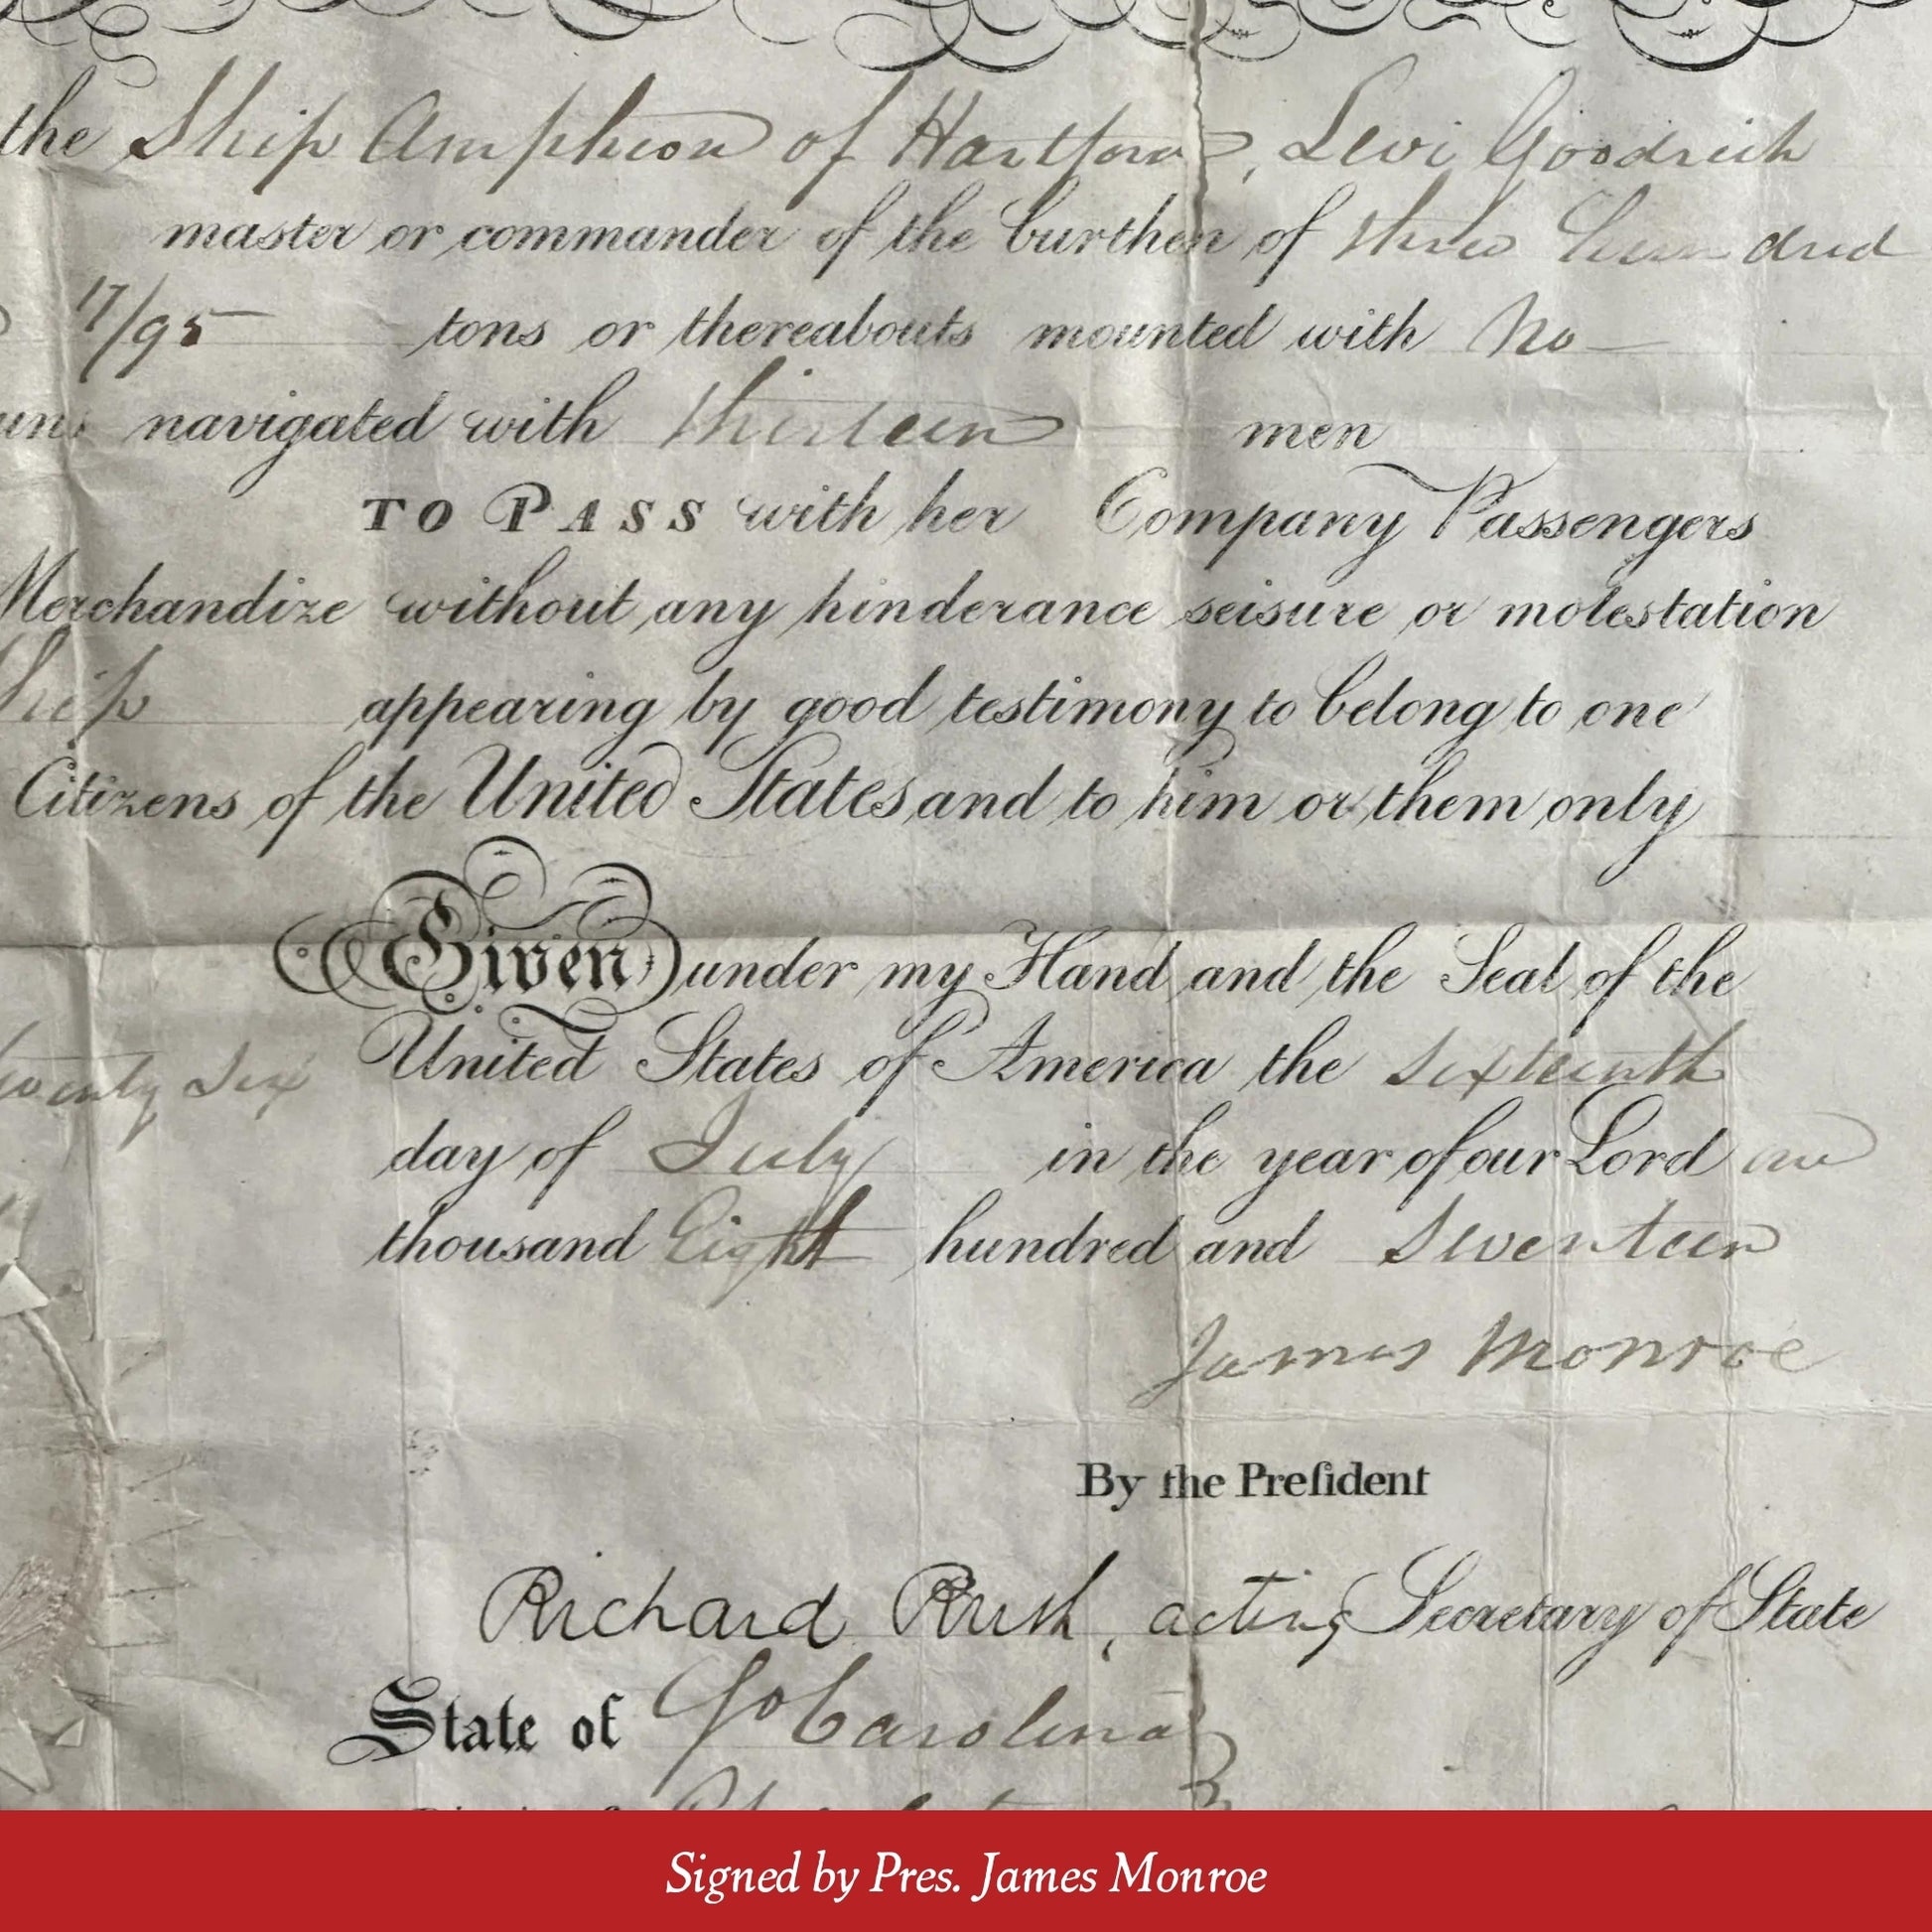 the Ship Amphion of Hartford, Levi Goodrich
master or commander of the burthen of three hundred
17/95 tons or thereabouts mounted with no
uns navigated with thirteen men
TO PASS with her Company Passengers
Merchandize without any hinderance seisure or molestation
hip appearing by good testimony to belong to one
Citizens of the United States and to him or them only
Given under my Hand and the Seal of the
United States of America the sixteenth
wenty Six
day of July in the year of our Lord one
thousand Eight hundred and Seventeen
James Monroe
By the Preſident
Richard Rush, acting Secretary of State
State of So Carolina
Signed by Pres. James Monroe